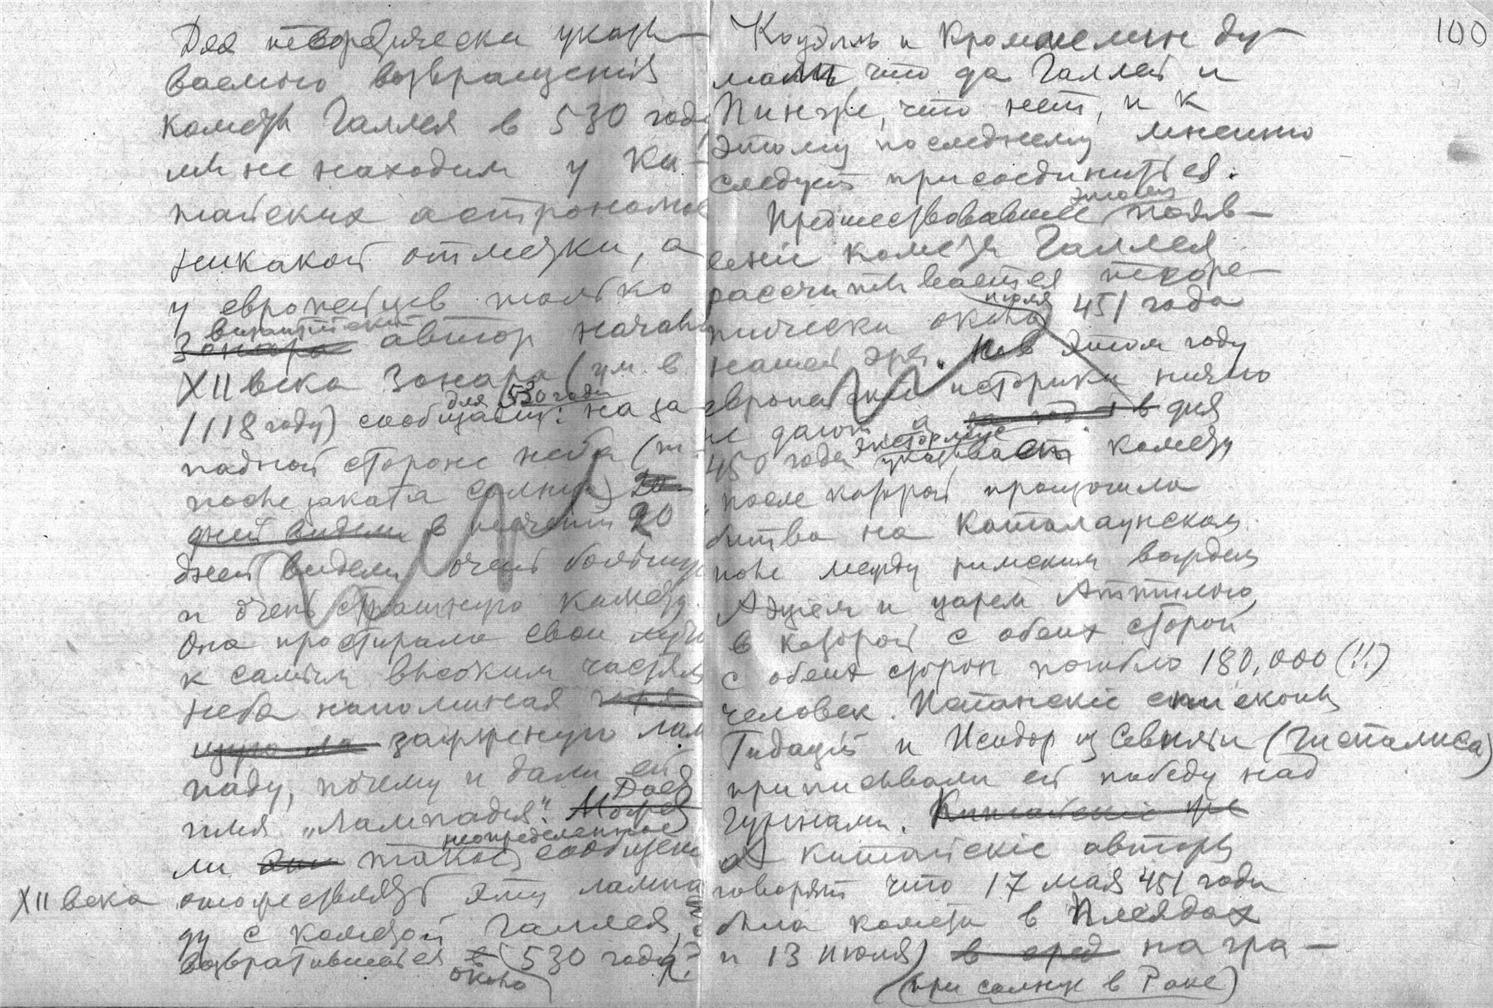 Для теоретически указы-
ваемого возвращения
кометы Галлея в 530 году
мы не находим у Ки-
тайских астрономов
никакой отметки, а
у европейцев только
византийский
Зонара автор начала
XII века Зонара (ум. в
для 530 года
1118 году) сообщает: на за-
падной стороне неба (т.
после заката солнца) 20
дней видели в течении 20
дней видели очень большую
и очень страшную комету.
Она простирала свои лучи
к самым высоким частям
неба напоминая горя-
щую ла зажженую лам
паду, почему и дали ей
имя „Лампадия". Могло Даст
неопределенное
ли они такое сообщение
XII века отожествлять эту лампа
ду с кометой Галлея,
возвратившейся в (530 году?
около
100
Коудилль и Кроммелин ду-
мают что да Галлей и
Пингре, что нет, и к
этому последнему мнению
следует присоединиться.
этому
Предшествовавшее появ-
ление кометы Галлея
рассчитывается теоре-
июля
тически около 451 года
нашей эры. Но в этом году
европейские историки ничего
не дают а за год в для
450 года Энстормце указывает комету
после которой произошла
битва на Каталаунском
поле между римским вождем
Аэцием и царем Аттилою,
в которой с обеих сторон
с обеих сторон погибло 180,000 (!!)
человек. Испанские епископы
Гидаций и Исидор из Севильи (Гиспалиса)
приписывали ей победу над
гуннами. Китайские же
а китайские авторы
говорят что 17 мая 451 года
была комета в Плеядах
и 13 июля) в сред на гра-
(при солнце в Раке)